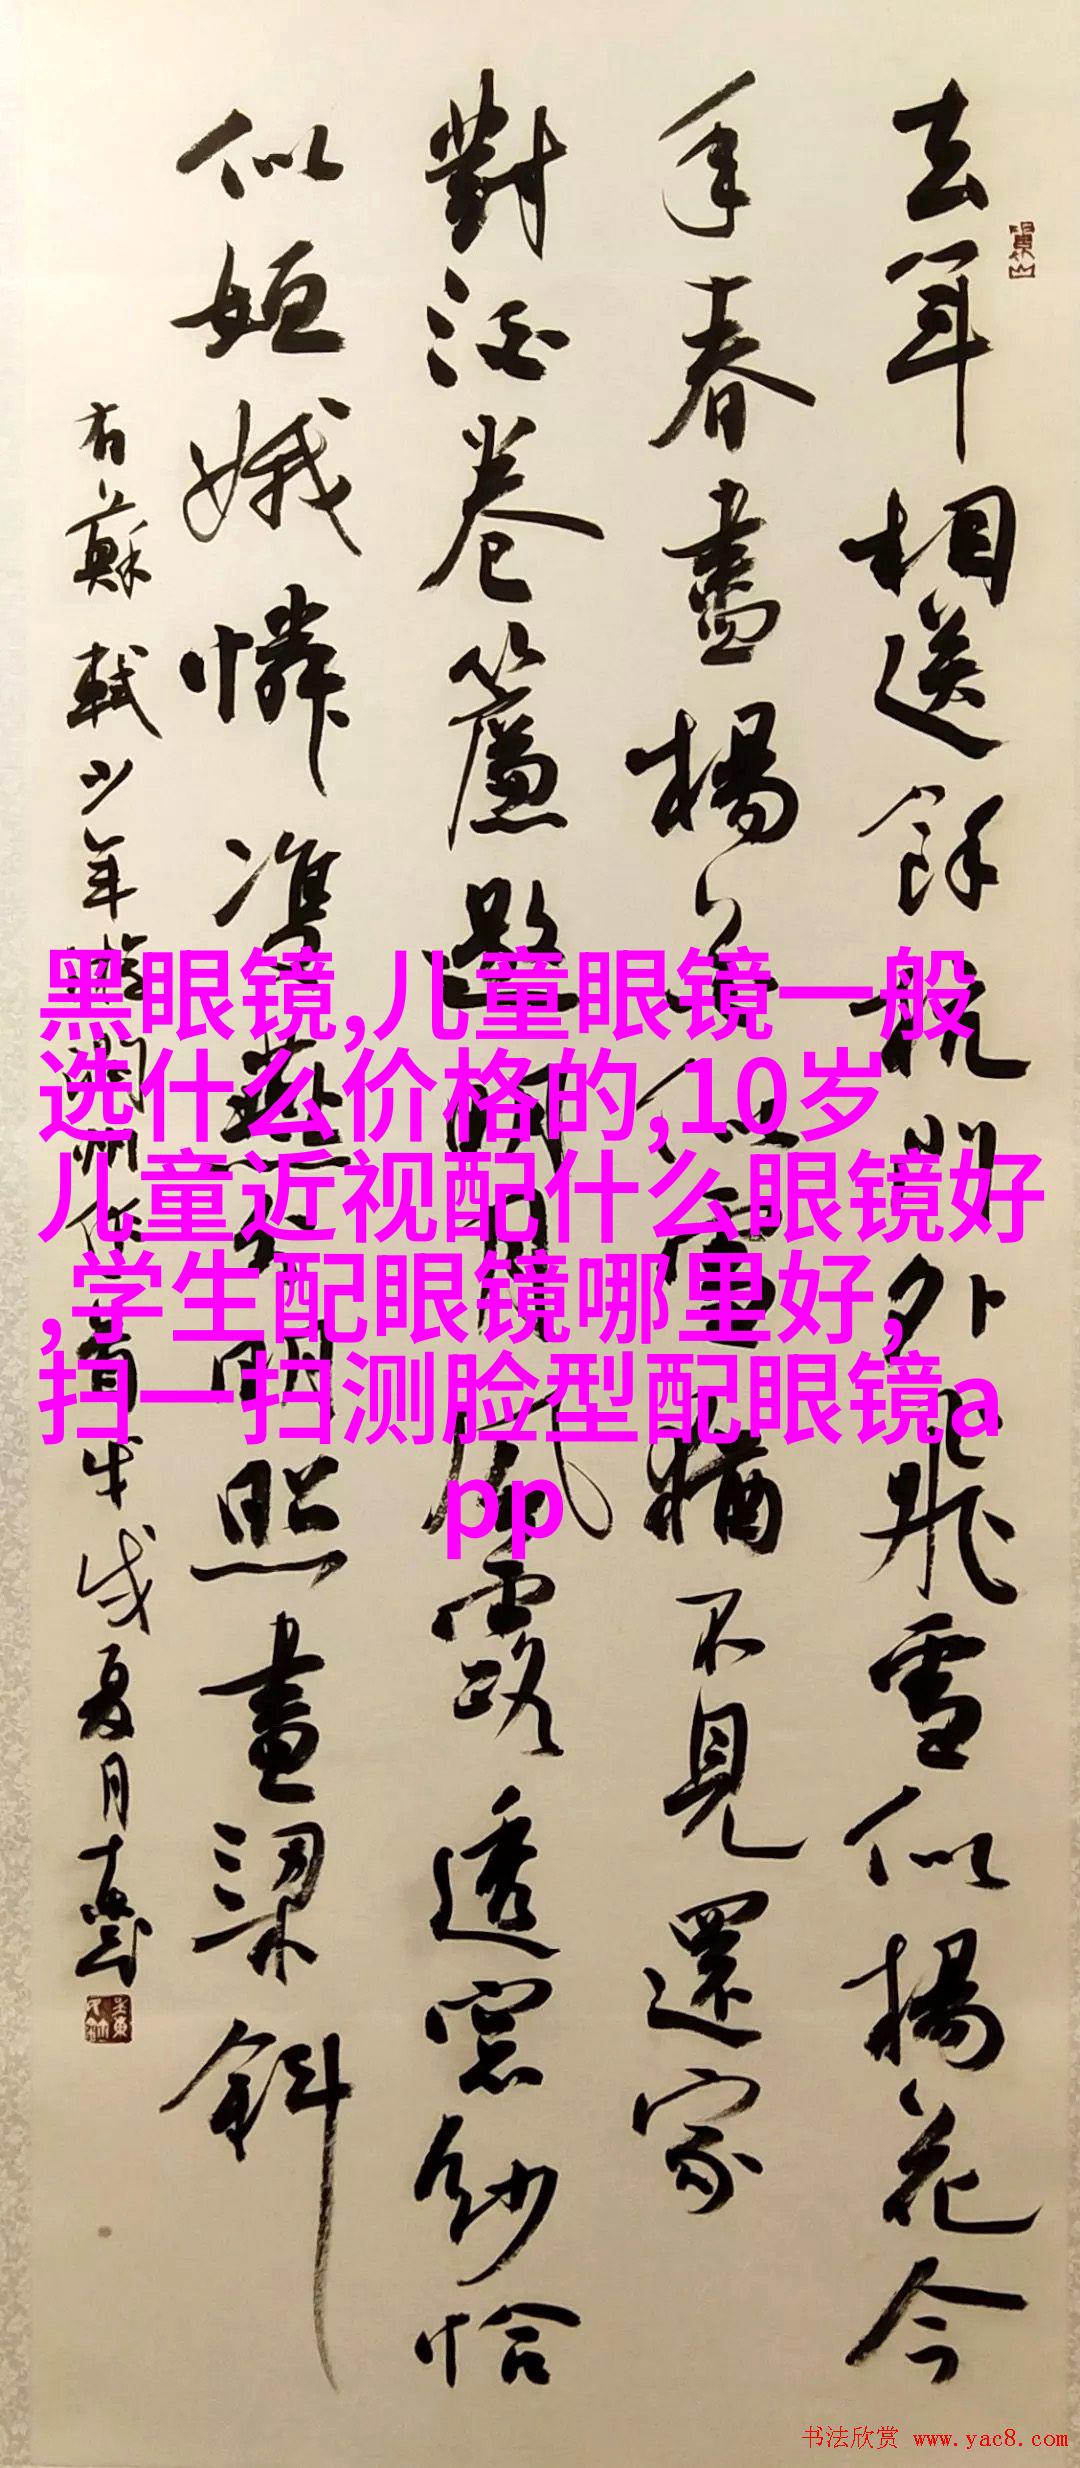 去年相送餘杭門外飛雪似楊花今
年春盡楊花似雪猶不見還家
對酒卷簾邀明月風露透窓紗恰
似姮娥憐雙燕分明照畫梁斜
右蘇軾少年遊潤州作
戊戌夏月
黑眼镜,儿童眼镜一般
选什么价格的,10岁
儿童近视配什么眼镜好
,学生配眼镜哪里好,
扫一扫测脸型配眼镜a
pp
书法欣赏 www.yac8.com